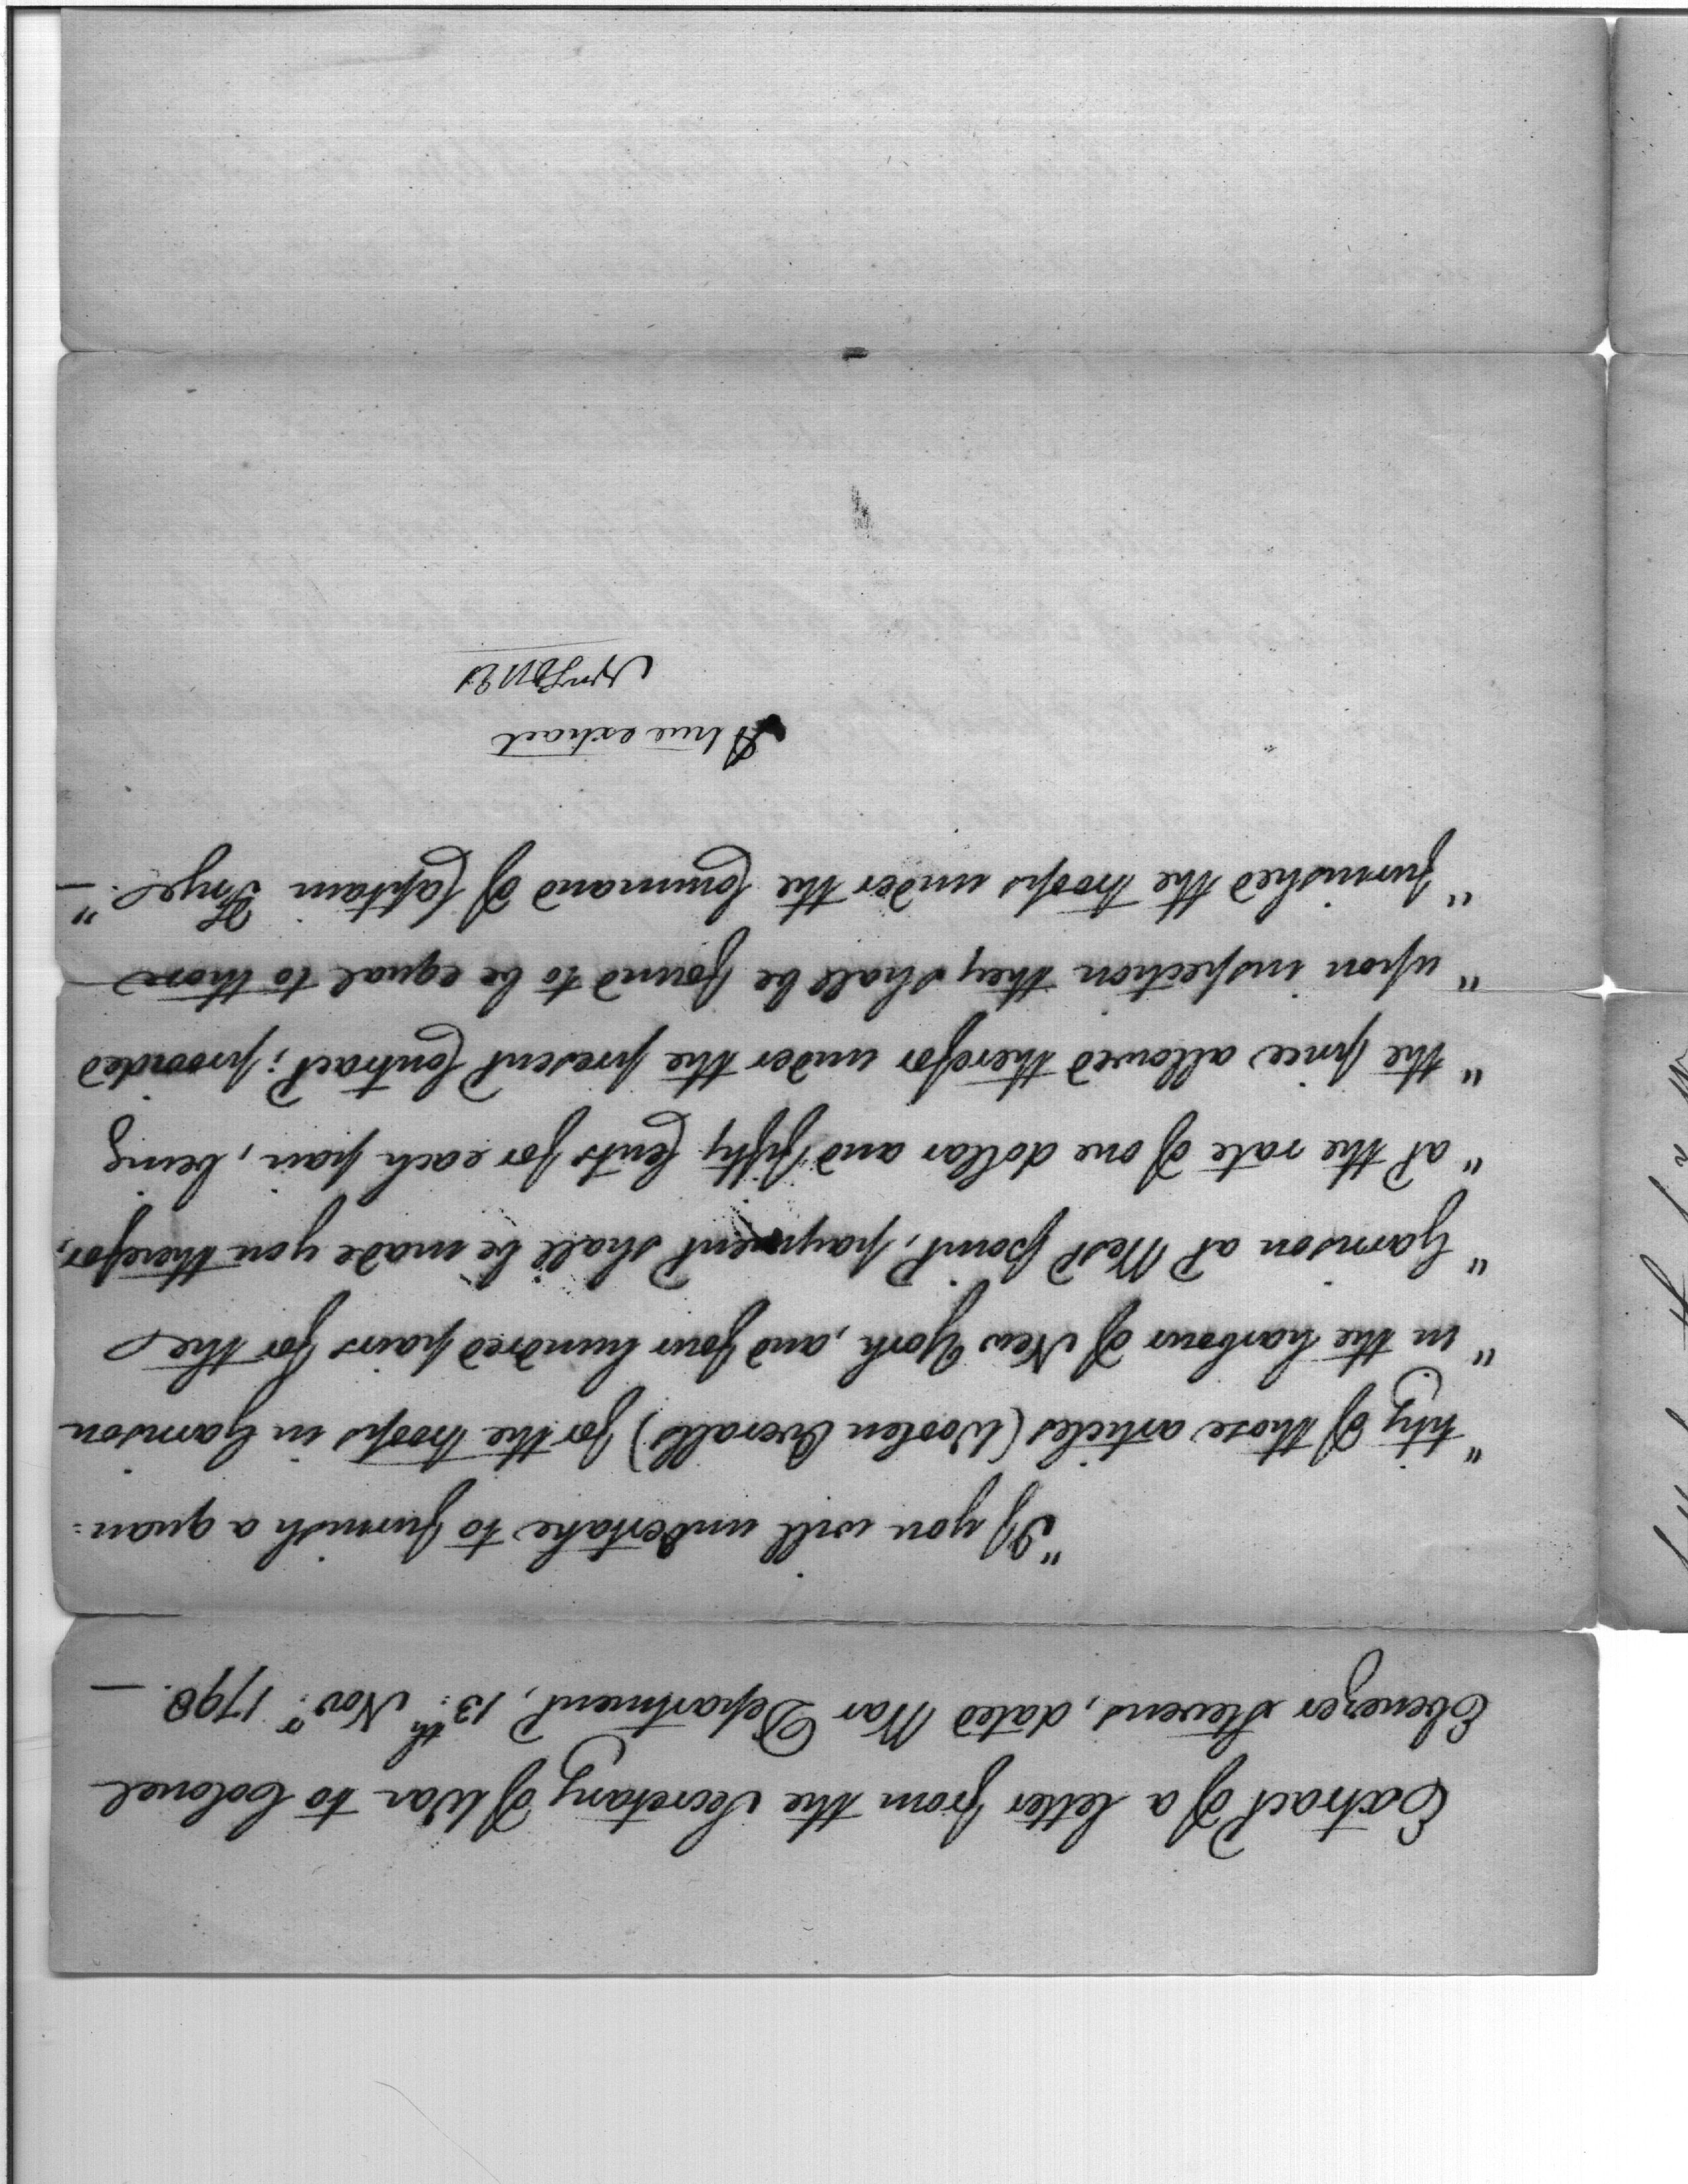 Extract of a letter from the Secretary of War to Colonel
Ebenezer Stevens, dated War Department, 13th: Novr: 1798. —
"If you will undertake to furnish a quan:
"tity of those articles (Woolen Overalls) for the troops in Garrison
"in the harbour of New York, and four hundred pairs for the
"Garrison at West point, payment shall be made you therefor,
"at the rate of one dollar and fifty Cents for each pair, being
"the price allowed therefor under the present Contract; provided
"upon inspection they shall be found to be equal to those
"furnished the troops under the Command of Captain Frye." —
A true extract
Wm Jones